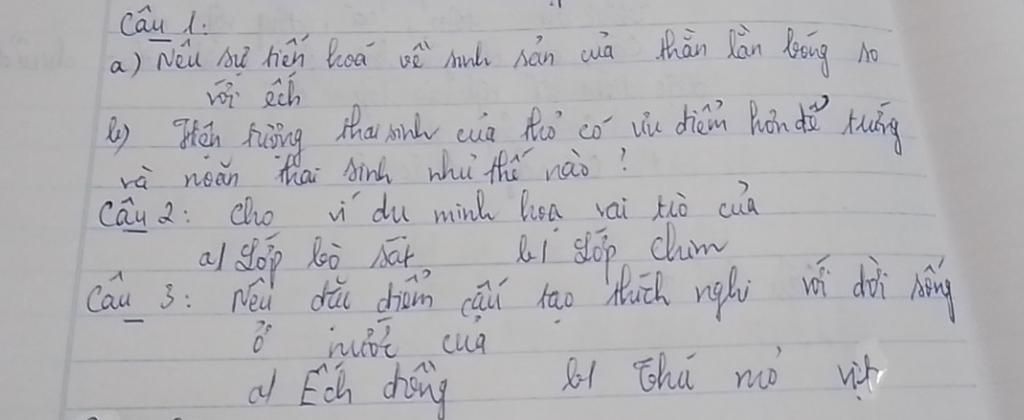 Câu 1:
a) Nêu sự tiến hoá về sinh sản của thằn lằn bóng so
với ếch
b) Hiện tượng thai sinh của thỏ có ưu điểm hơn đẻ trứng
và noãn thai sinh như thế nào?
Câu 2: Cho ví dụ minh hoạ vai trò của
a/ Lớp bò sát b/ Lớp chim
Câu 3: Nêu đặc điểm cấu tạo thích nghi với đời sống
ở nước của
a/ Ếch đồng b/ Thú mỏ vịt